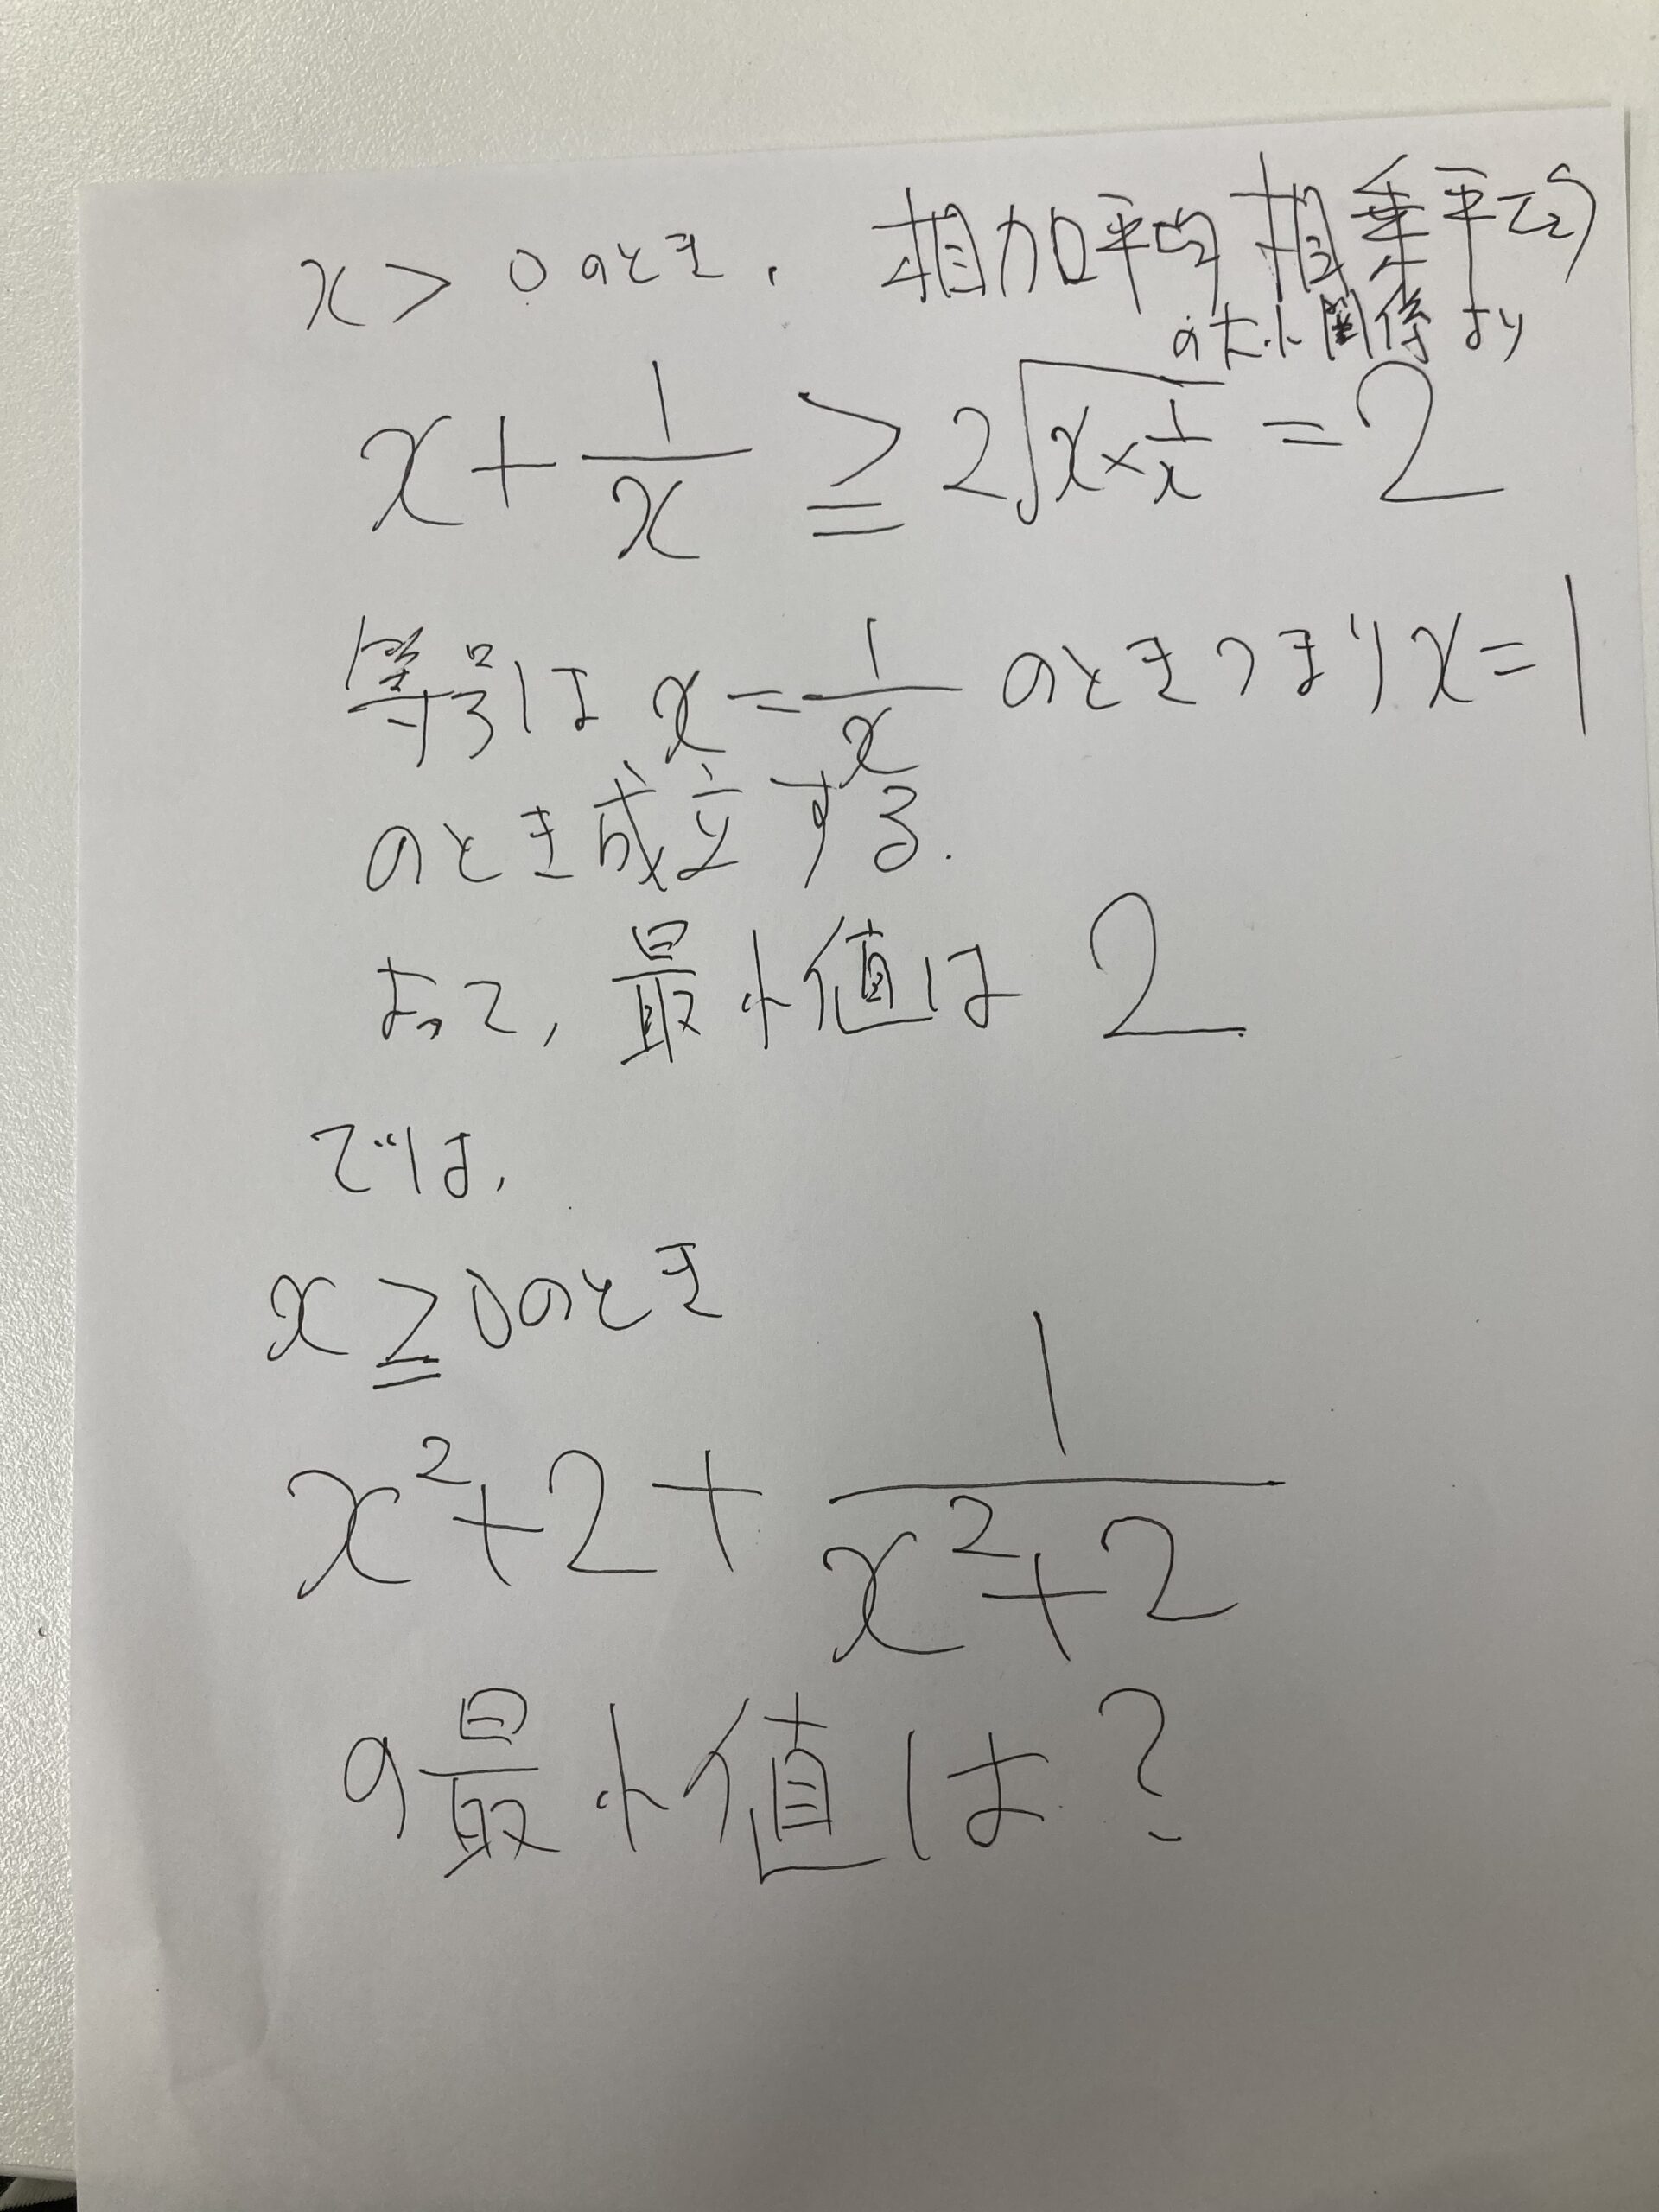 x > 0 のとき, 相加平均 相乗平均
の大小関係より
x + 1/x ≧ 2√(x × 1/x) = 2
等号は x = 1/x のとき つまり x = 1
のとき成立する.
よって, 最小値は 2
では,
x ≧ 0 のとき
x² + 2 + 1/(x² + 2)
の最小値は?